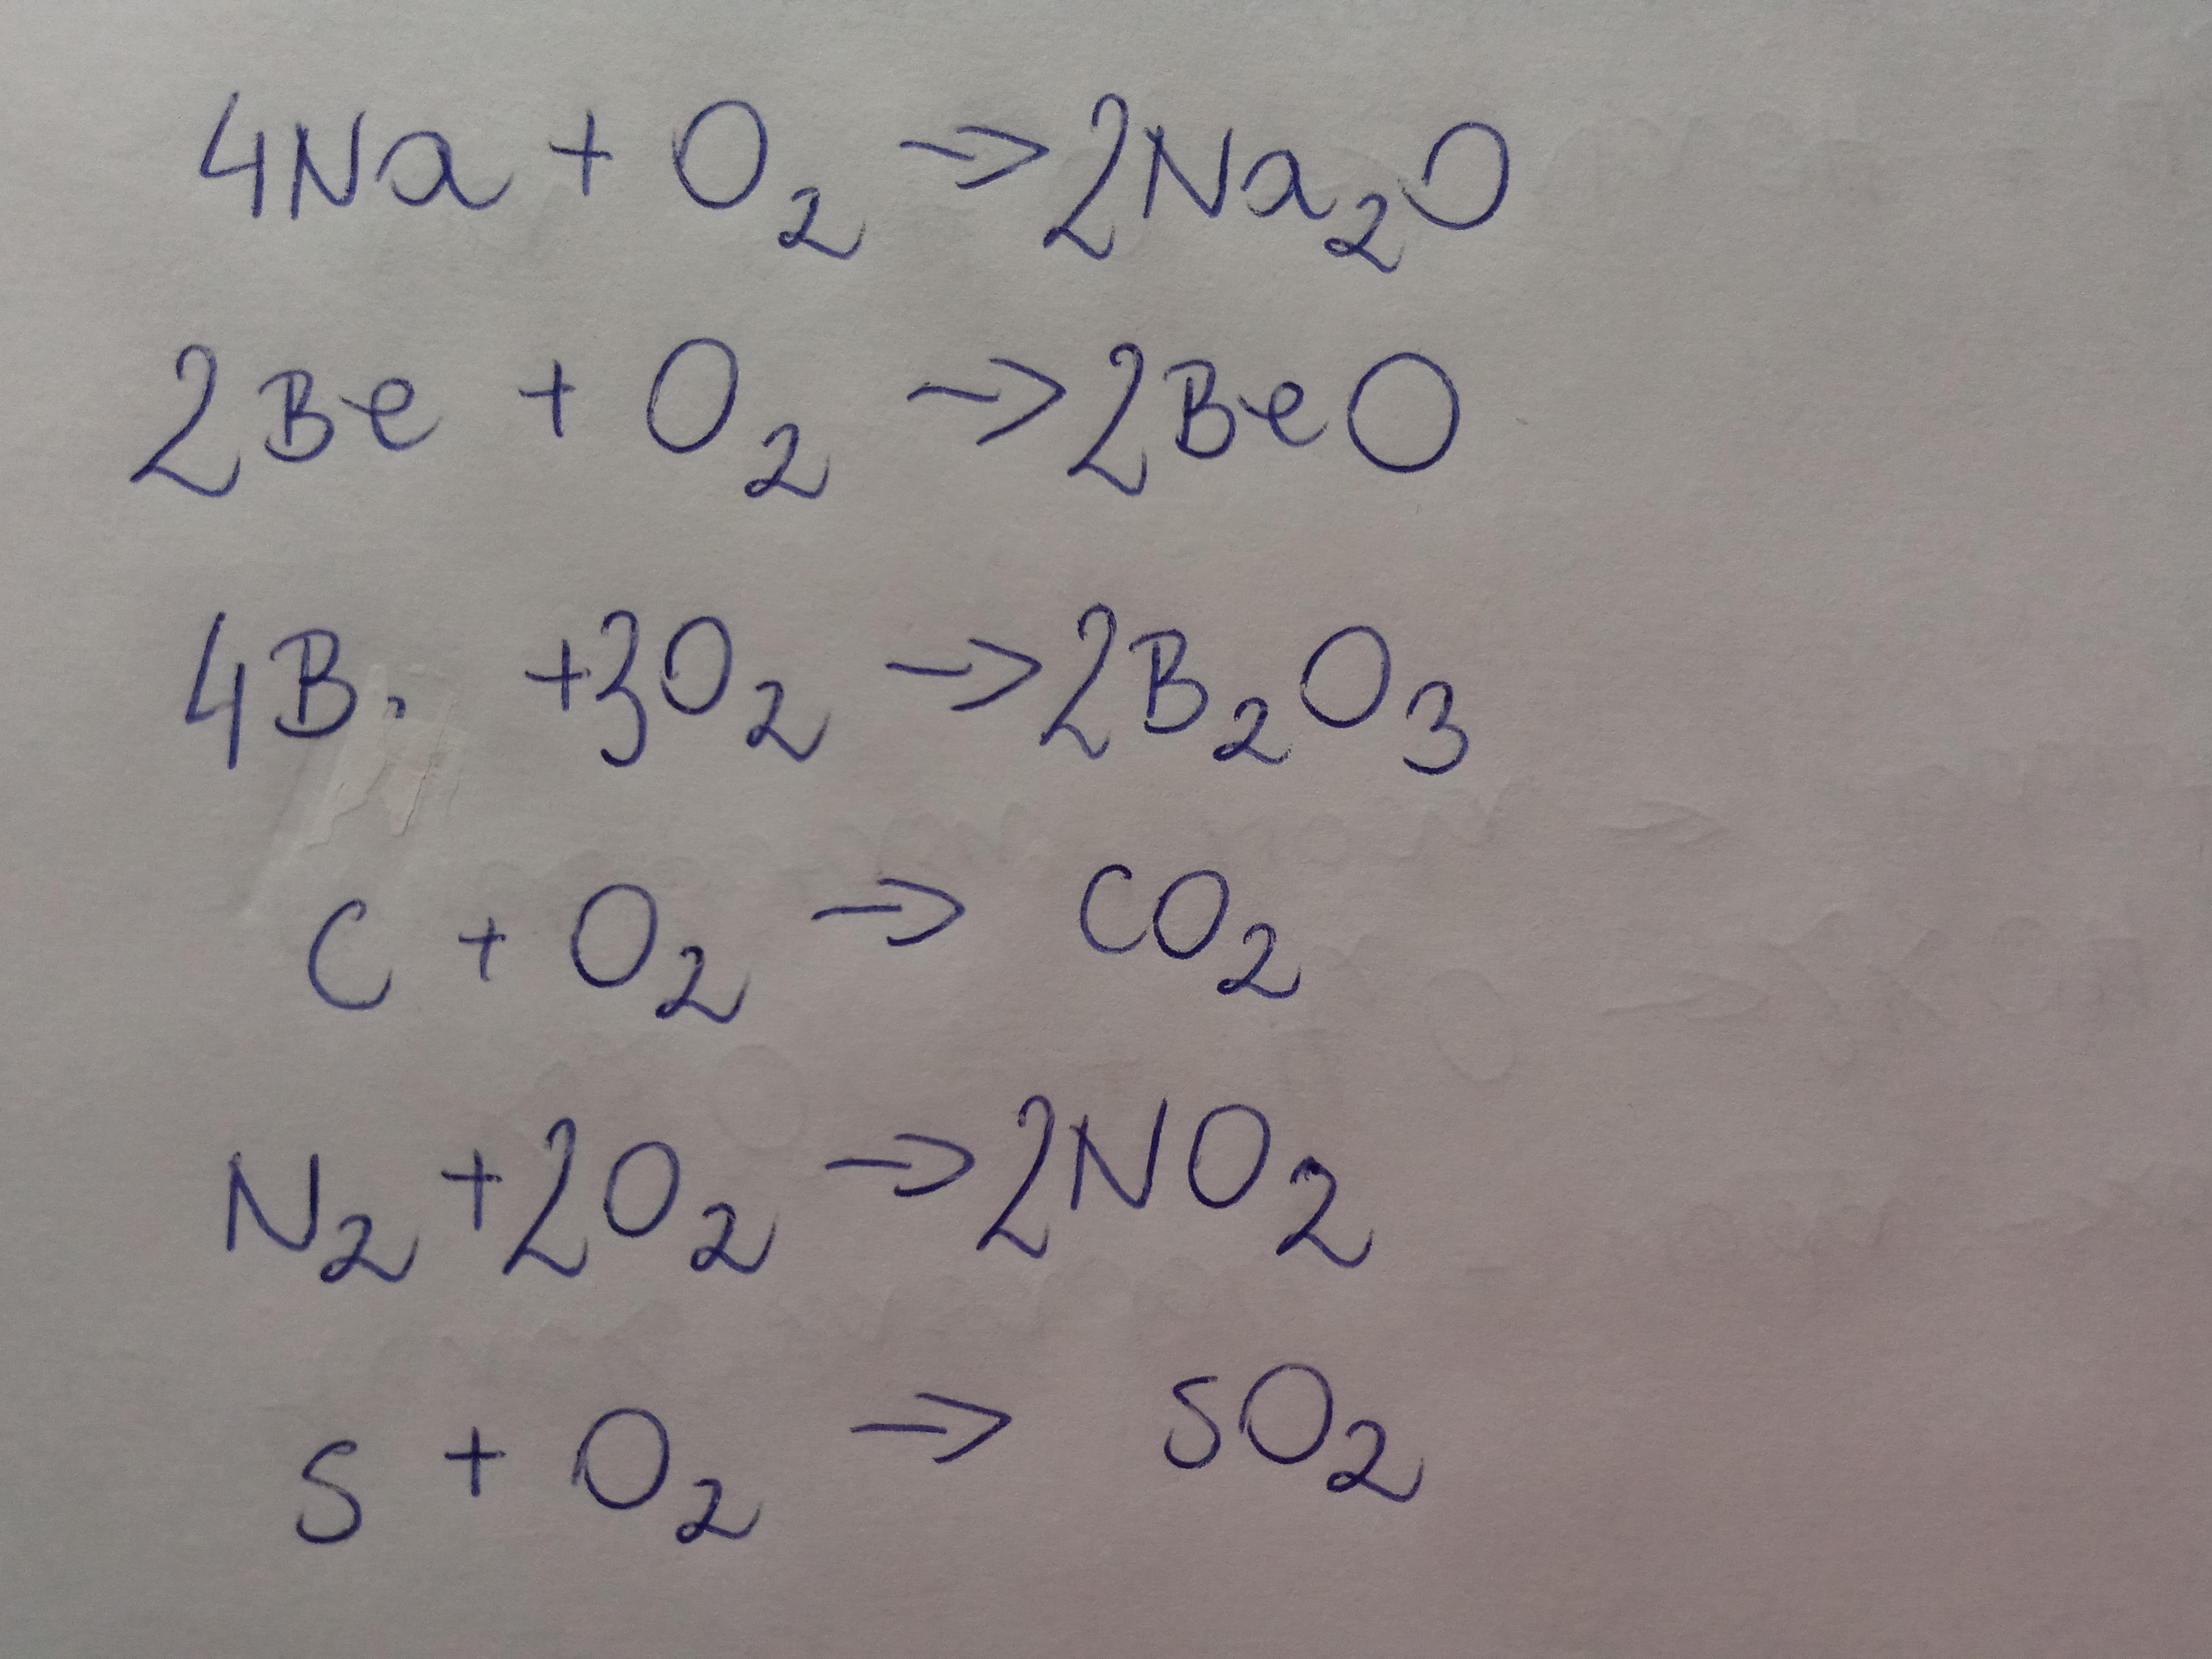 4Na + O₂ → 2Na₂O
2Be + O₂ → 2BeO
4B + 3O₂ → 2B₂O₃
C + O₂ → CO₂
N₂ + 2O₂ → 2NO₂
S + O₂ → SO₂